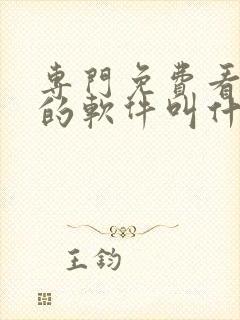 專門免費看
的軟件叫什
王鈞